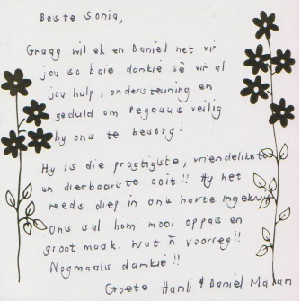 Beste Sonia,
Graag wil ek en Daniel net vir
jou so baie dankie sê vir al
jou hulp, ondersteuning en
geduld om Pegasus veilig
by ons te besorg!
Hy is die pragtigste, vriendelikste
en dierbaarste ooit!! Hy het
reeds diep in ons harte ingekruip
Ons sal hom mooi oppas en
groot maak. Wat 'n voorreg!!
Nogmaals dankie!!
Groete Hanli & Daniel